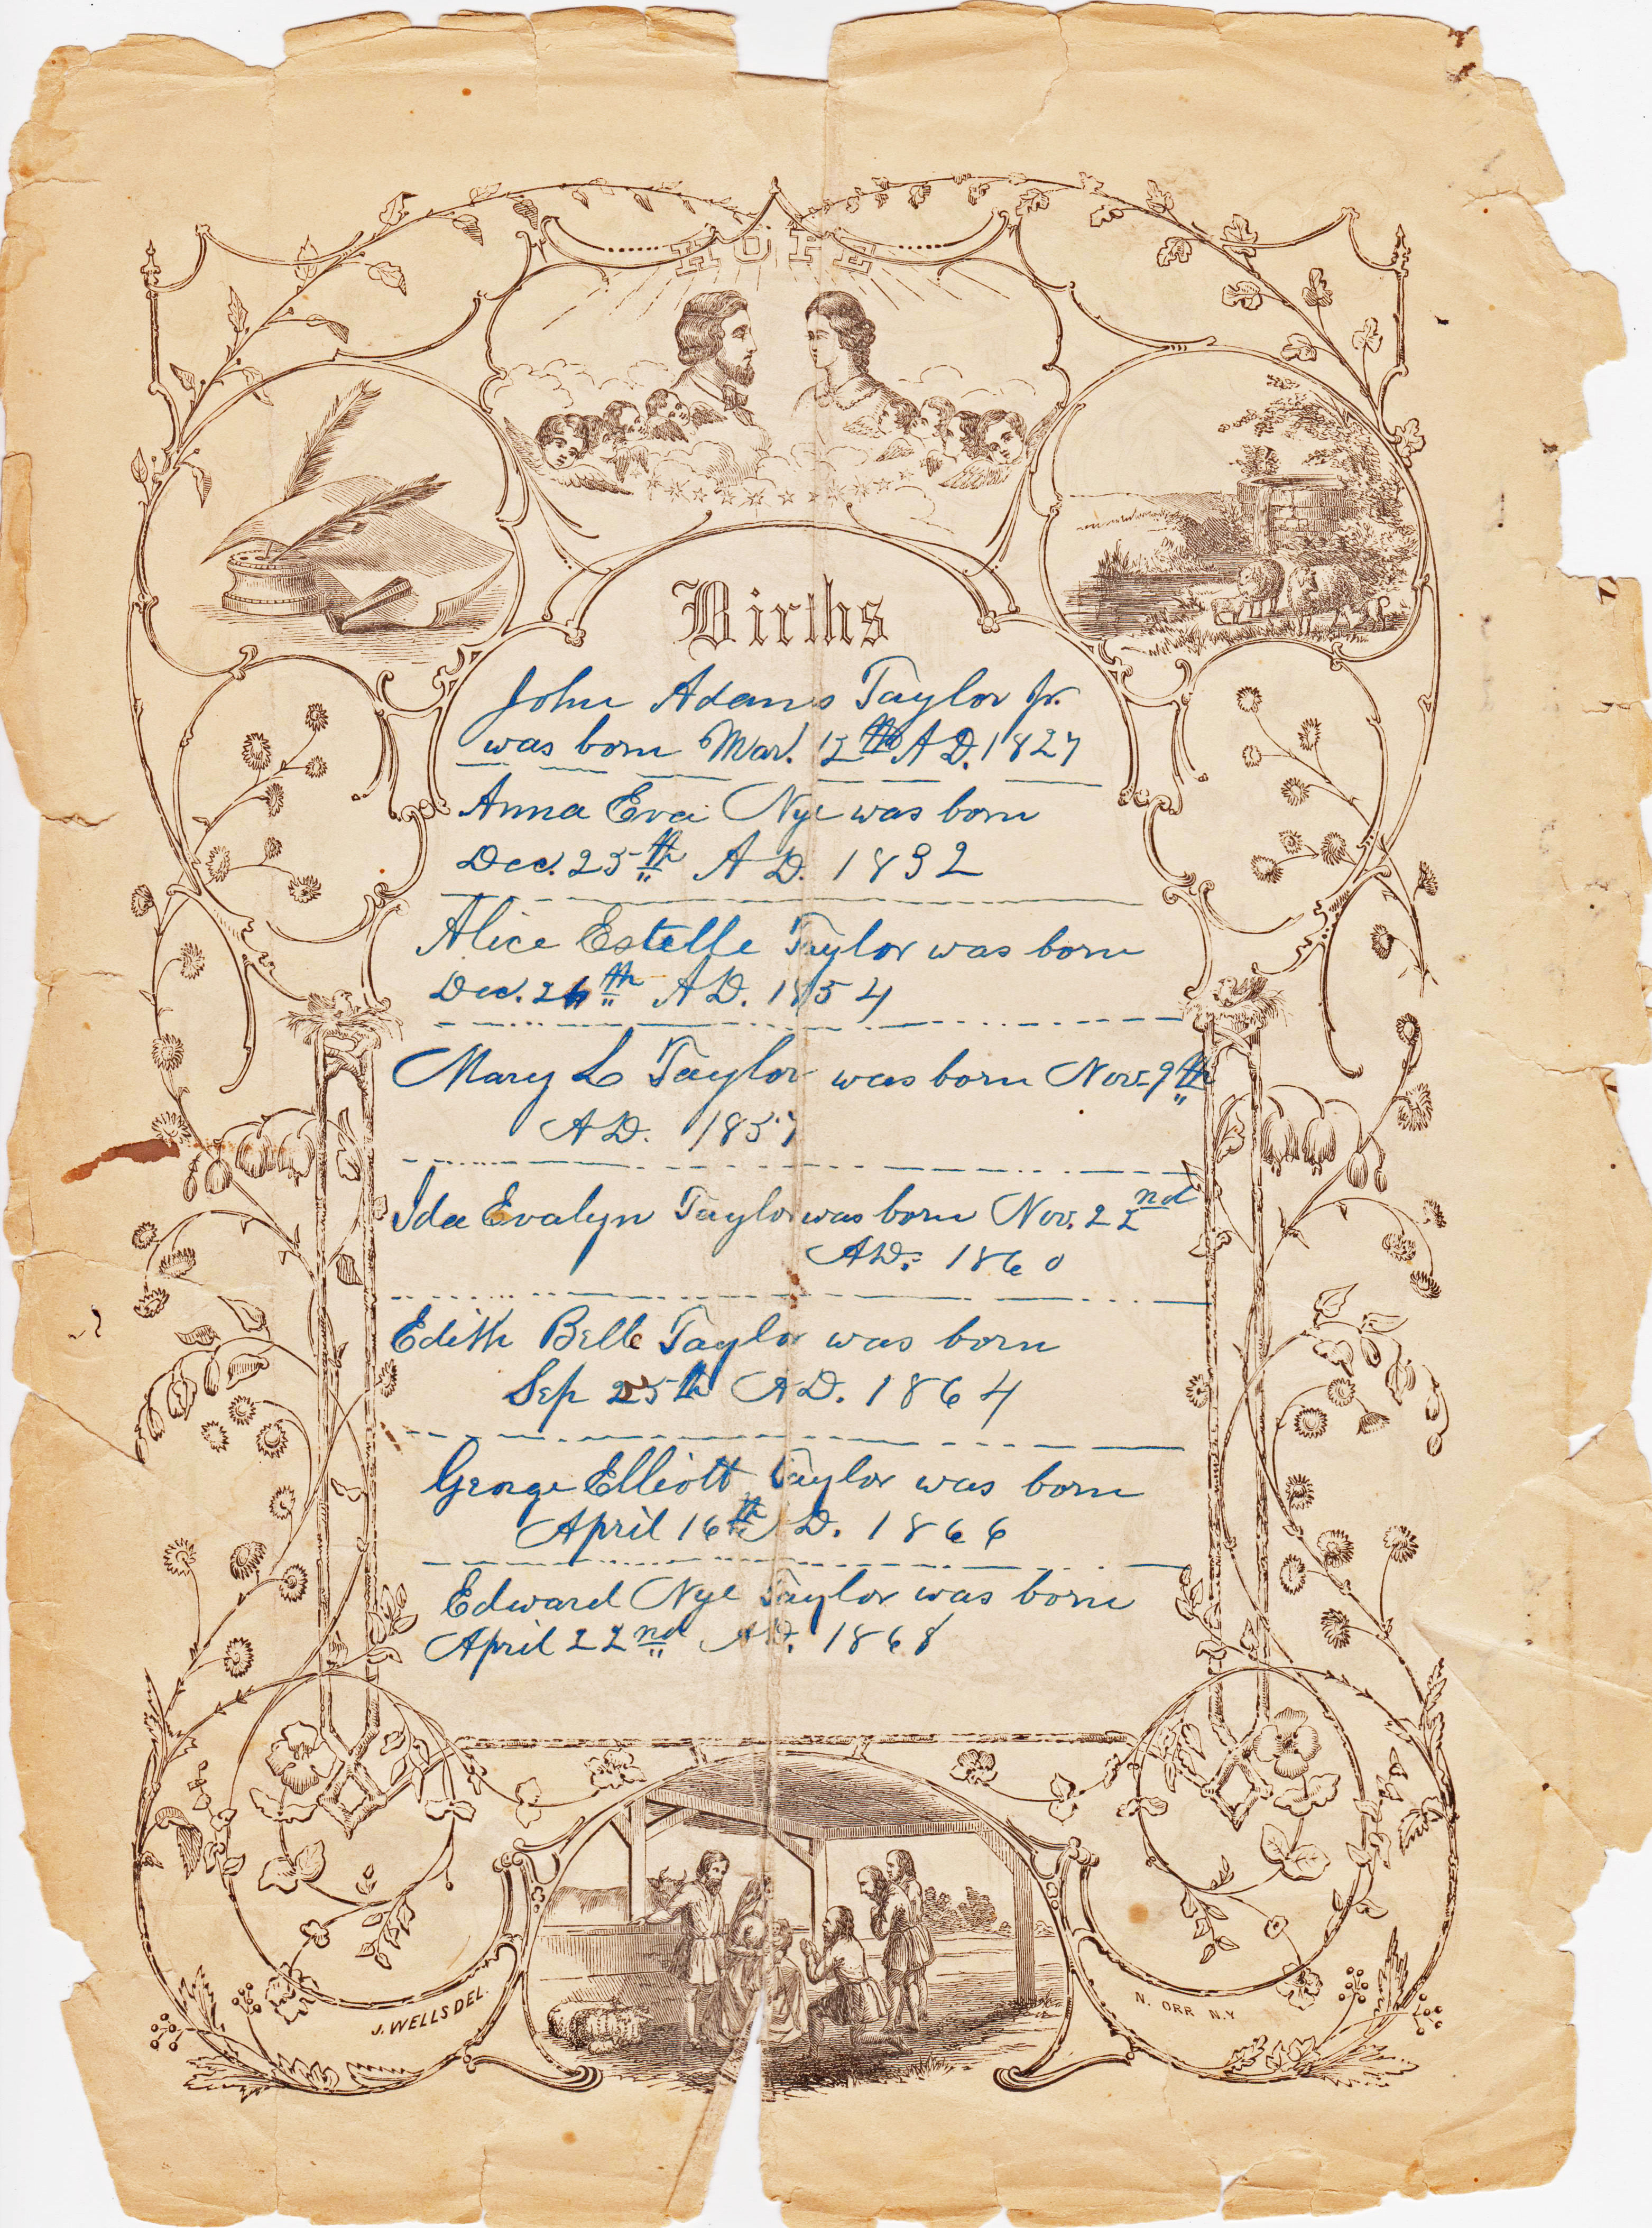 HOPE
Births
John Adams Taylor Jr.
was born Mar. 12th A D. 1827
Anna Eva Nye was born
Dec. 25th A D. 1832
Alice Estelle Taylor was born
Dec. th A D. 1854
Mary L Taylor was born Nov. 9th
A D. 1857
Ida Evalyn Taylor was born Nov. 22nd
A D. 1860
Edith Belle Taylor was born
Sep 25th A D. 1864
George Elliott Taylor was born
April 16th A D. 1866
Edward Nye Taylor was born
April 22nd A D. 1868
J. WELLS DEL.
N. ORR N.Y